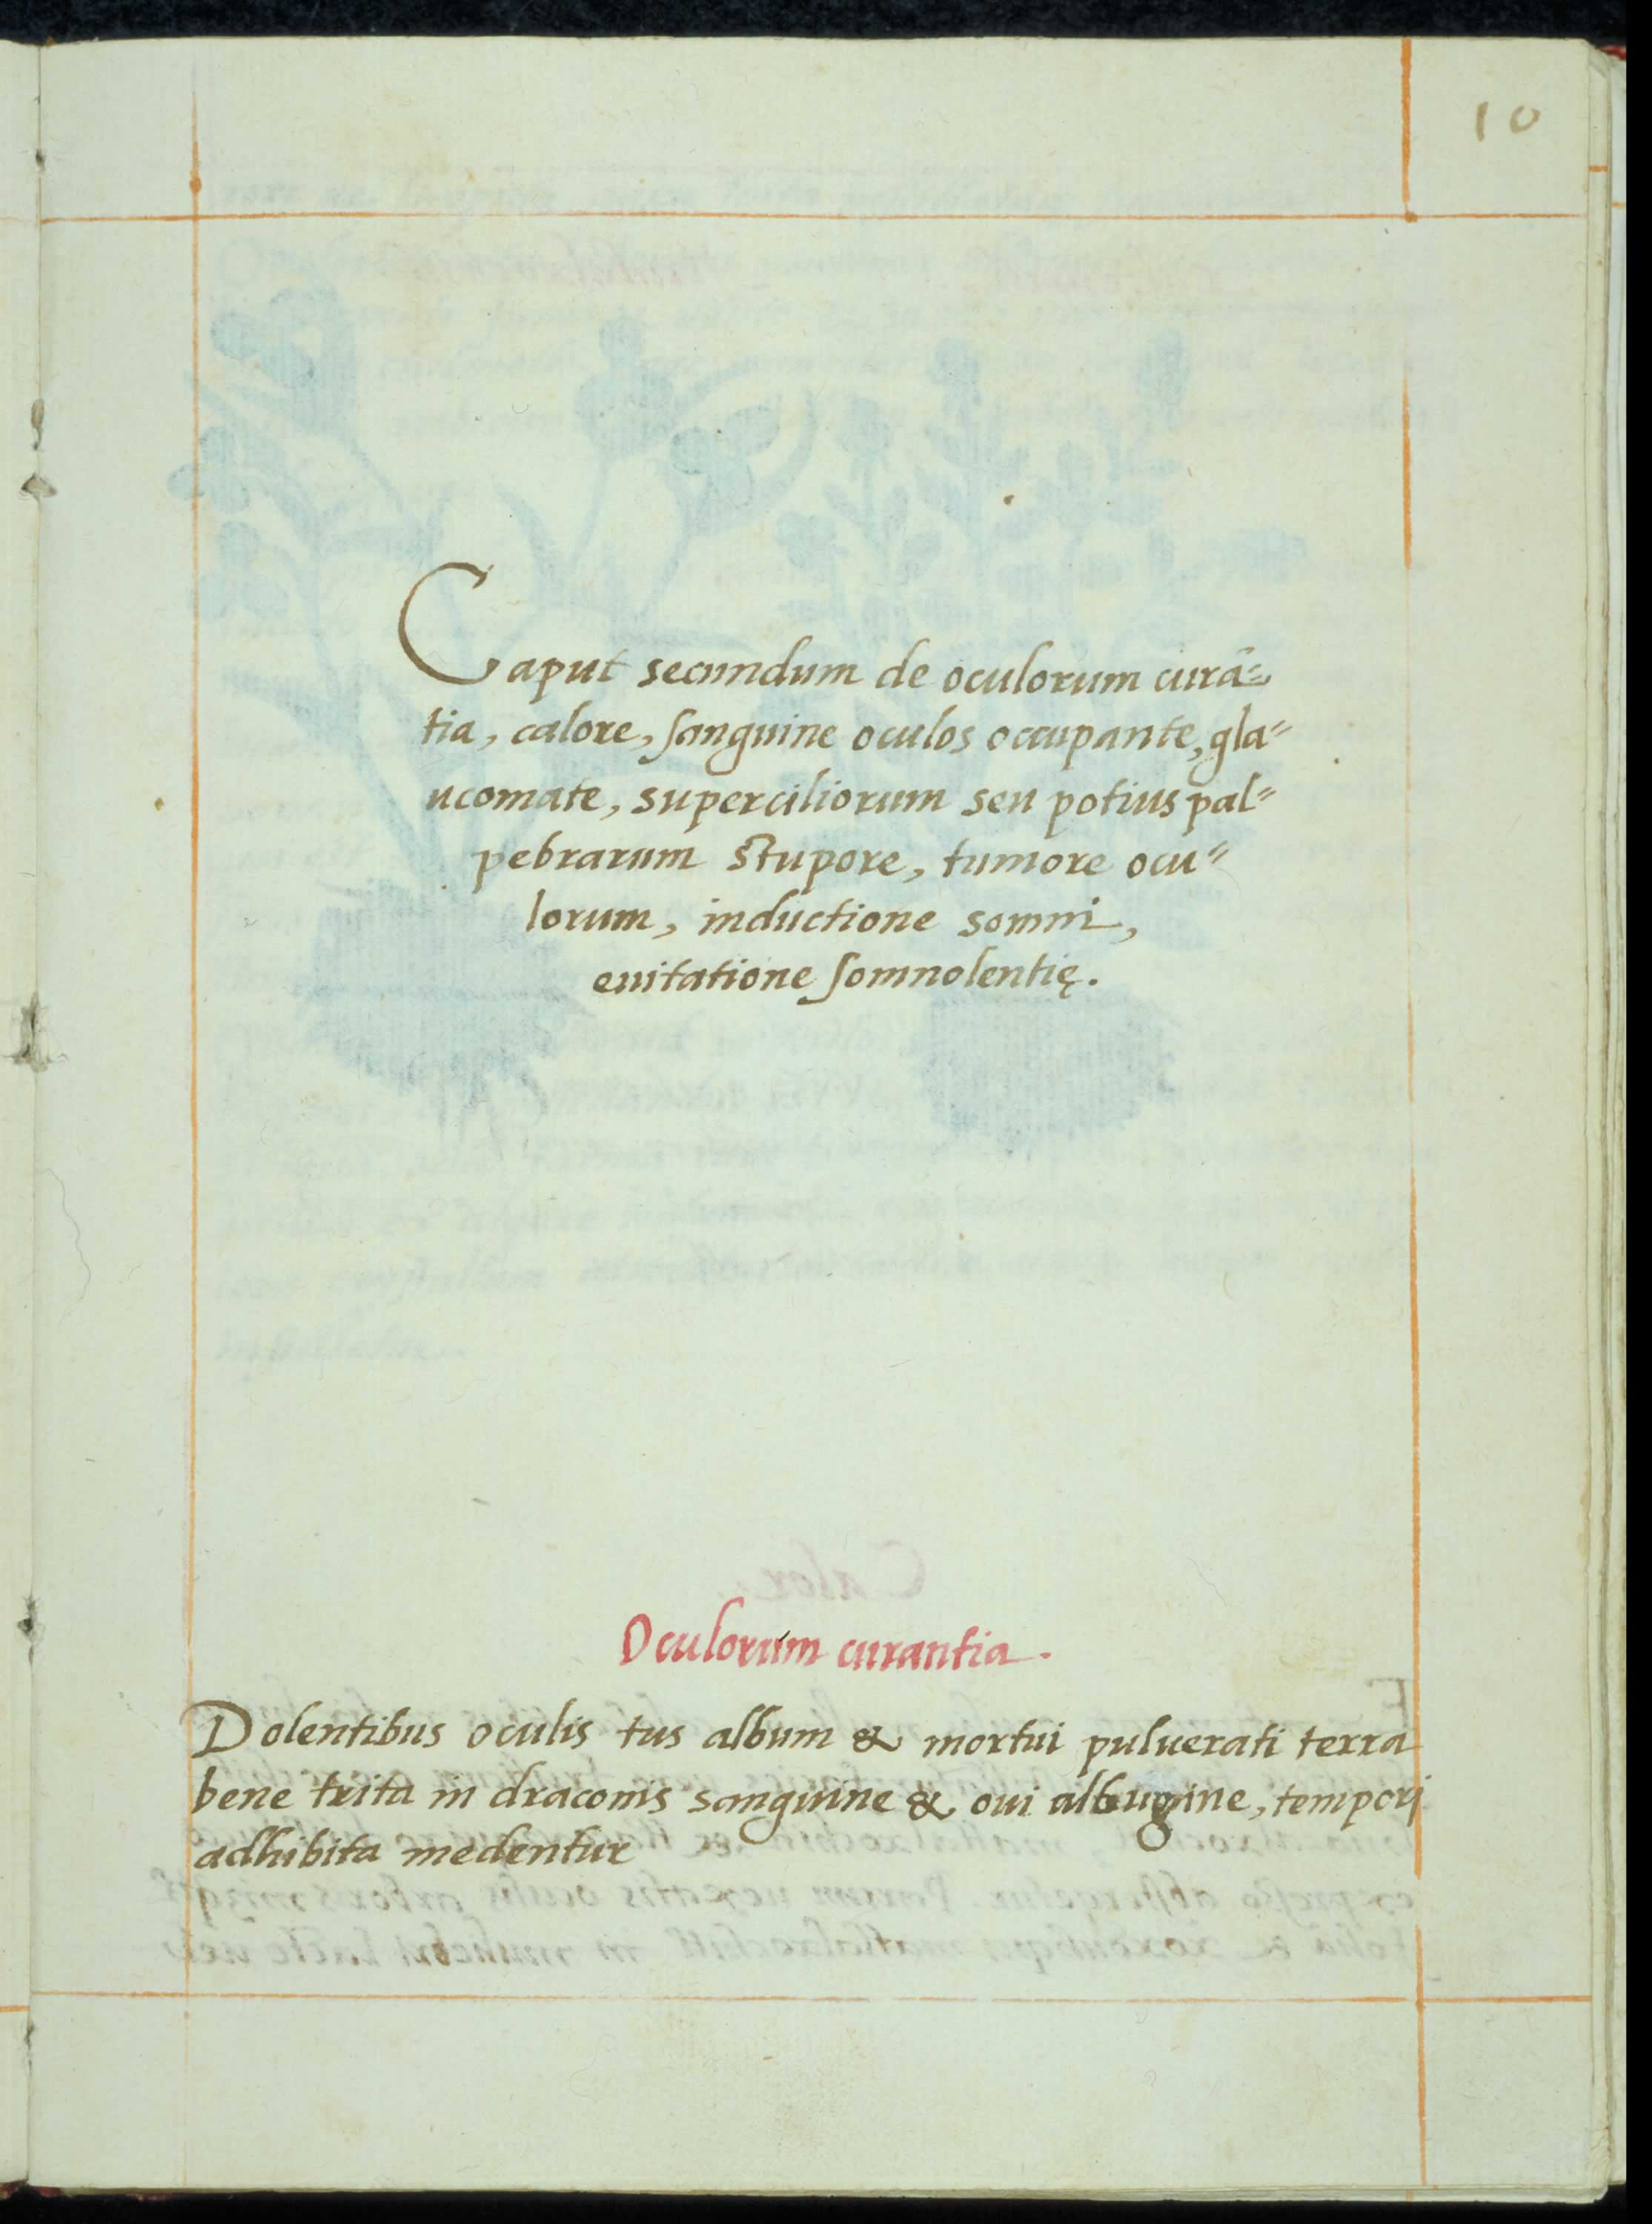 10
Caput secundum de oculorum curā=
tia, calore, ſanguine oculos occupante, gla=
ucomate, superciliorum seu potius pal=
pebrarum stupore, tumore ocu=
lorum, inductione somni,
euitatione ſomnolentię.
Oculorum curantia.
Dolentibus oculis tus album & mortui puluerati terra
bene trita in draconis sanguine & oui albugine, tempori
adhibita medentur